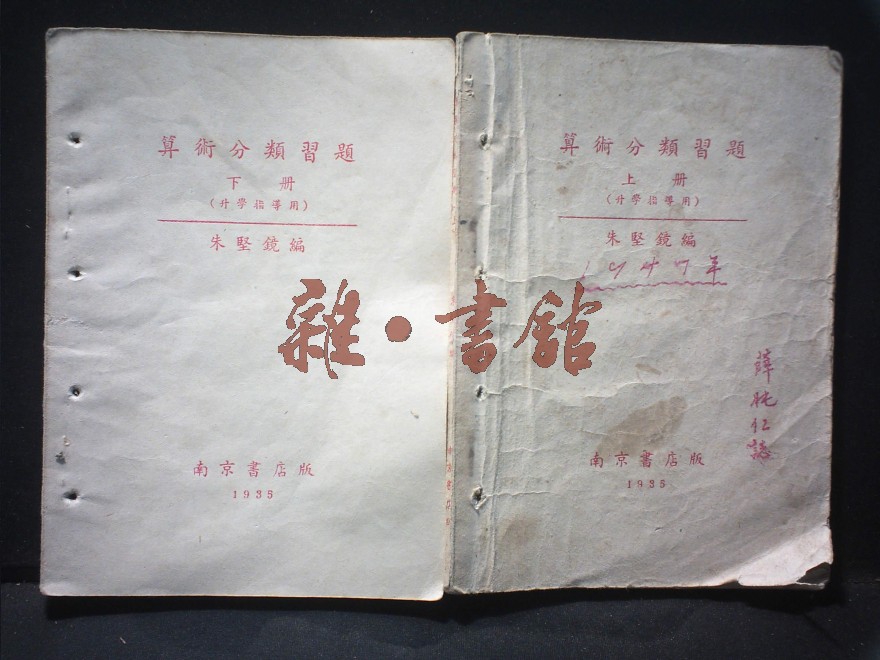 算術分類習題
下册
(升學指導用)
朱堅鏡編
南京書店版
1935
算術分類習題
上册
(升學指導用)
朱堅鏡編
1947年
南京書店版
1935
雜·書舘